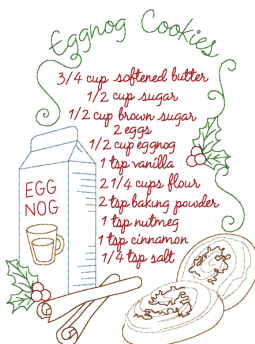 Eggnog Cookies
3/4 cup softened butter
1/2 cup sugar
1/2 cup brown sugar
2 eggs
1/2 cup eggnog
1 tsp vanilla
2 1/4 cups flour
2 tsp baking powder
1 tsp nutmeg
1 tsp cinnamon
1/4 tsp salt
EGG
NOG